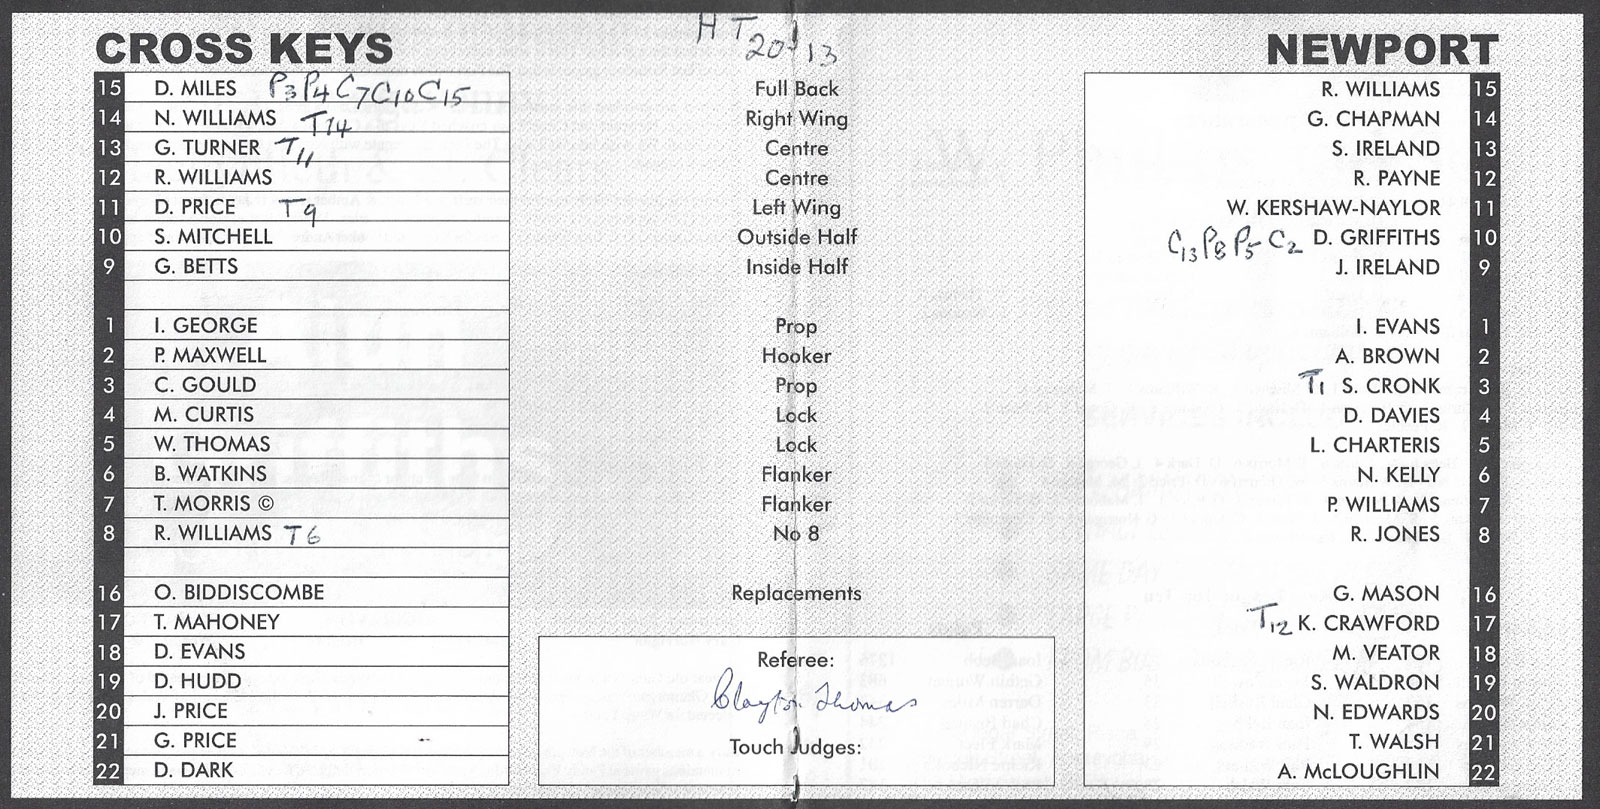 H T
20 13
CROSS KEYS NEWPORT
15 D. MILES P3 P4 C7 C10 C15 Full Back R. WILLIAMS 15
14 N. WILLIAMS T14 Right Wing G. CHAPMAN 14
13 G. TURNER T11 Centre S. IRELAND 13
12 R. WILLIAMS Centre R. PAYNE 12
11 D. PRICE T9 Left Wing W. KERSHAW-NAYLOR 11
10 S. MITCHELL Outside Half C13 P8 P5 C2 D. GRIFFITHS 10
9 G. BETTS Inside Half J. IRELAND 9
1 I. GEORGE Prop I. EVANS 1
2 P. MAXWELL Hooker A. BROWN 2
3 C. GOULD Prop T1 S. CRONK 3
4 M. CURTIS Lock D. DAVIES 4
5 W. THOMAS Lock L. CHARTERIS 5
6 B. WATKINS Flanker N. KELLY 6
7 T. MORRIS © Flanker P. WILLIAMS 7
8 R. WILLIAMS T6 No 8 R. JONES 8
16 O. BIDDISCOMBE Replacements G. MASON 16
17 T. MAHONEY T12 K. CRAWFORD 17
18 D. EVANS Referee: M. VEATOR 18
19 D. HUDD Clayton Thomas S. WALDRON 19
20 J. PRICE N. EDWARDS 20
21 G. PRICE Touch Judges: T. WALSH 21
22 D. DARK A. McLOUGHLIN 22